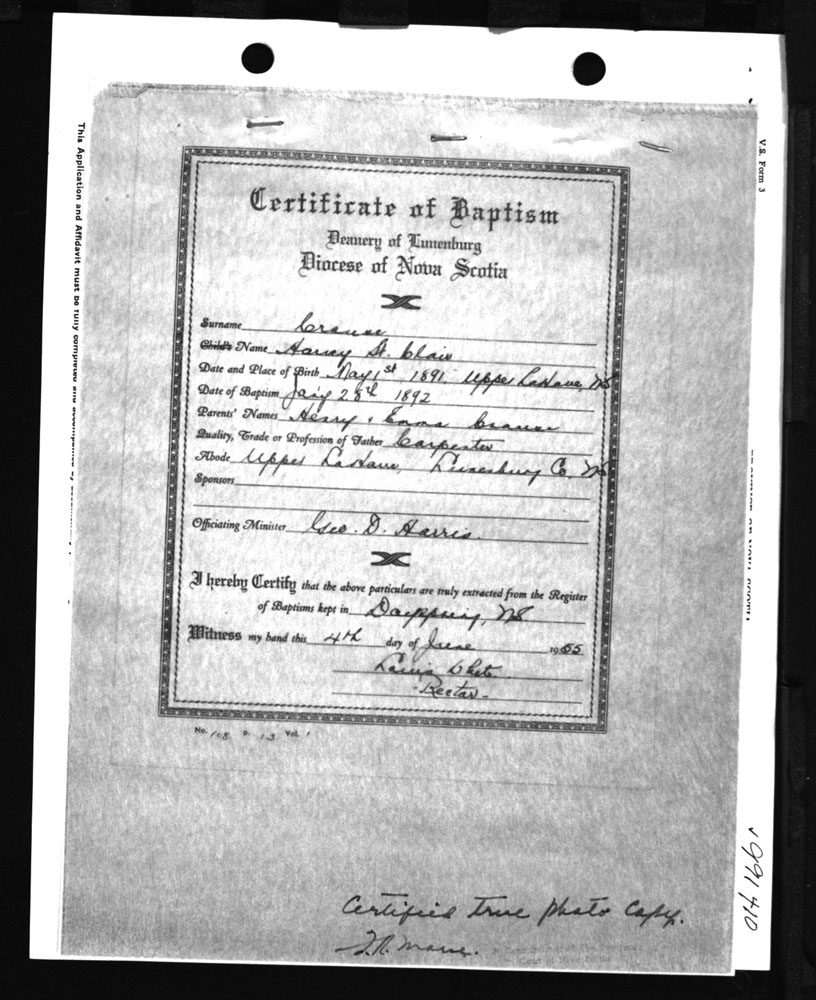 Certificate of Baptism
Deanery of Lunenburg
Diocese of Nova Scotia
Surname Crause
Child's Name Harvey St. Clair
Date and Place of Birth May 1st 1891, Upper LaHave, NS
Date of Baptism Jan'y 28th 1892
Parents' Names Henry & Emma Crause
Quality, Trade or Profession of Father Carpenter
Abode Upper LaHave, Lunenburg Co. NS
Sponsors
Officiating Minister Geo. D. Harris.
I hereby Certify that the above particulars are truly extracted from the Register
of Baptisms kept in NS
Witness my hand this 4th day of June 1955
- Rector -
No. P. 13 Vol. 1
Certified true photo copy.
This Application and Affidavit must be fully completed and accompanied by
V.S. Form 3
991410